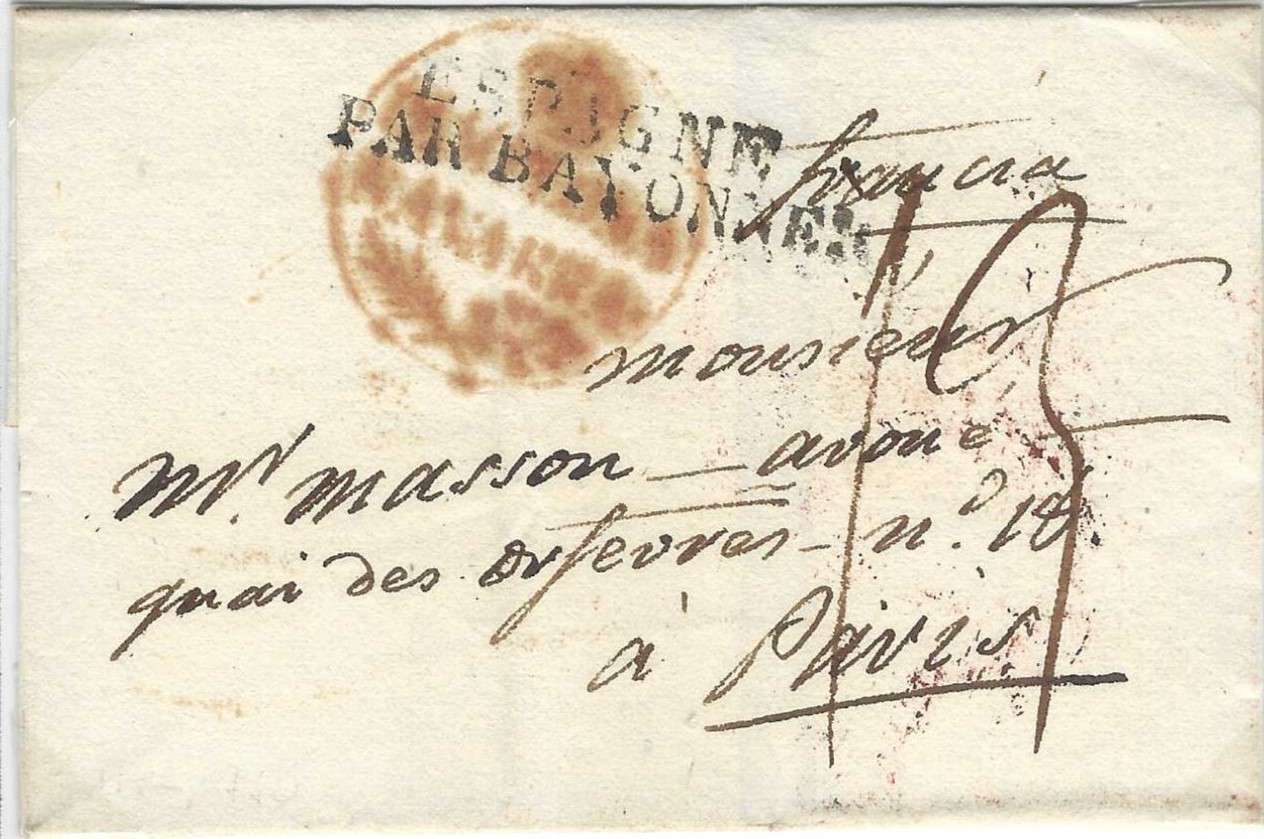 ESPAGNE
PAR BAYONNE
francia
19
monsieur
Mr. masson _ avoué
quai des orfevres - no. 18.
à Pàris